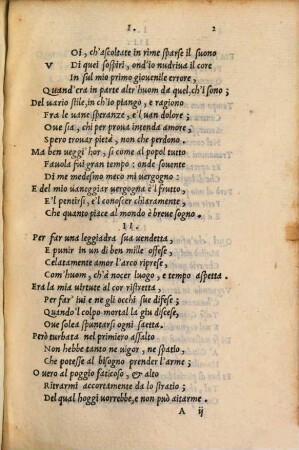 I. 2
V Oi, ch'ascoltate in rime sparse il suono
Di quei sospiri, ond'io nudriua il core
In sul mio primo giouenile errore,
Quand'era in parte altr'huom da quel, ch'i sono;
Del uario stile, in ch'io piango, e ragiono
Fra le uane speranze, e'l uan dolore;
Oue sia, chi per proua intenda amore,
Spero trouar pietà, non che perdono.
Ma ben ueggi'hor, sì come al popol tutto
Fauola fui gran tempo: onde souente
Di me medesmo meco mi uergogno:
E del mio uaneggiar uergogna è'l frutto,
E'l pentirsi, e'l conoscer chiaramente,
Che quanto piace al mondo è breue sogno.
II.
Per far una leggiadra sua uendetta,
E punir in un dì ben mille offese,
Celatamente amor l'arco riprese,
Com'huom, ch'à nocer luogo, e tempo aspetta.
Era la mia uirtute al cor ristretta,
Per far' iui e ne gli occhi sue difese;
Quando'l colpo mortal la giu discese,
Oue solea spuntarsi ogni saetta.
Però turbata nel primiero assalto
Non hebbe tanto ne uigor, ne spatio,
Che potesse al bisogno prender l'arme;
O uero al poggio faticoso, & alto
Ritrarmi accortamente da lo stratio;
Del qual hoggi uorrebbe, e non può aitarme.
A ij